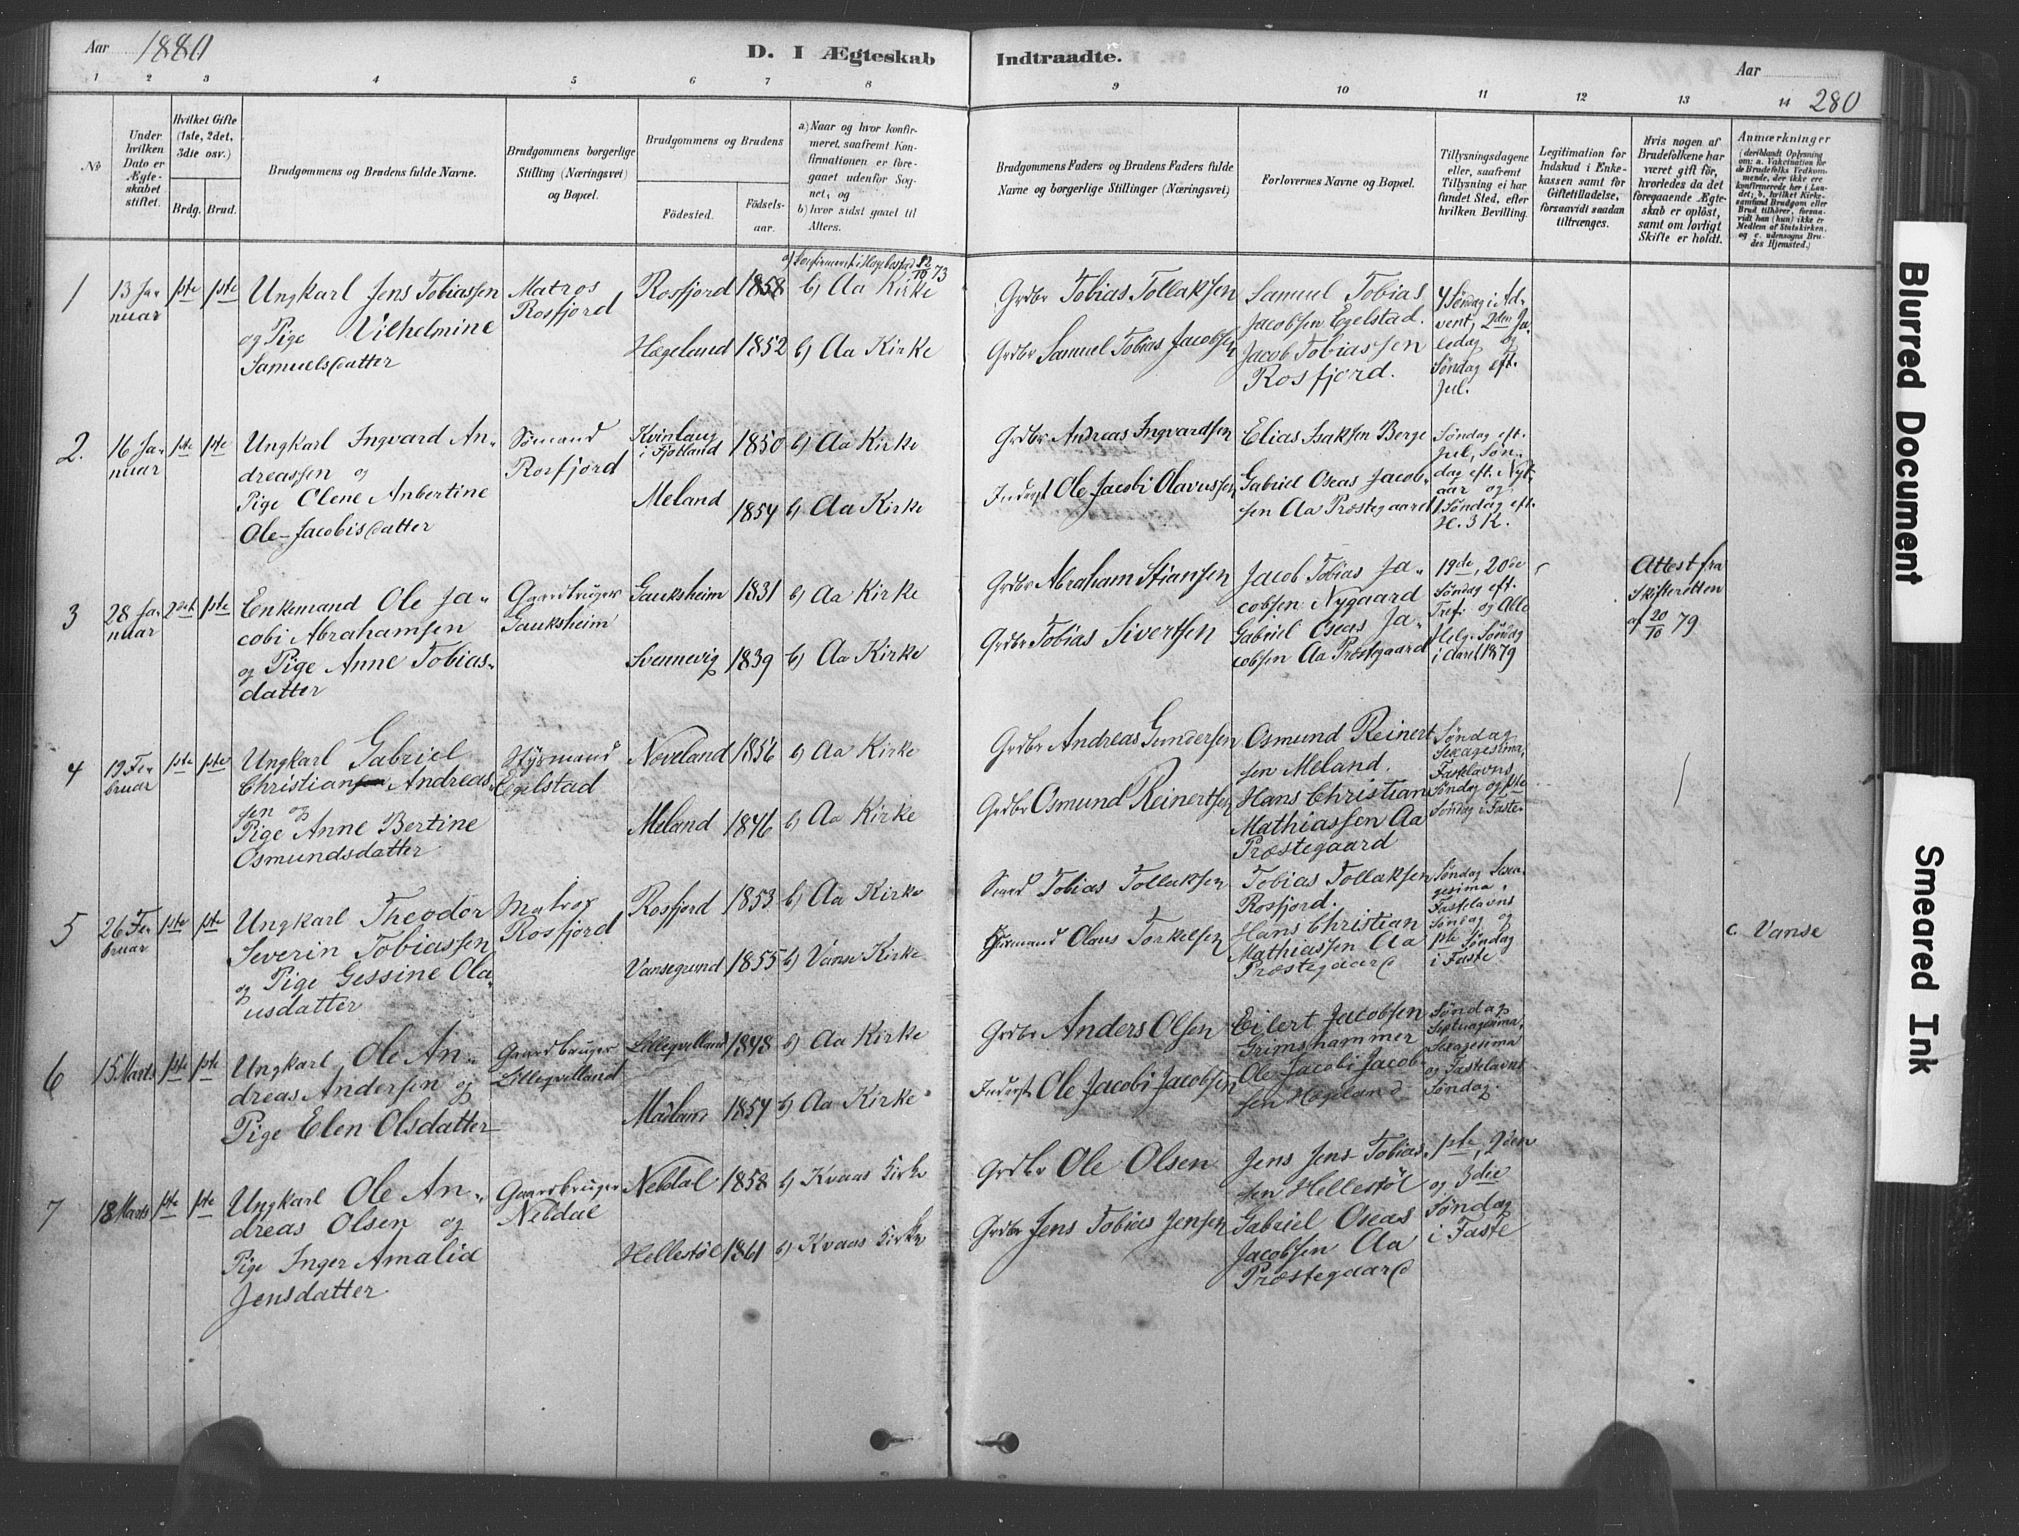 Aar 1880
D. I Ægteskab Indtraadte.
Aar
280
1 2 3 4 5 6 7 8 9 10 11 12 13 14
№
Under hvilken Dato er Ægteskabet stiftet.
Hvilket Gifte (1ste, 2det, 3die osv.)
Brdg. Brud.
Brudgommens og Brudens fulde Navne.
Brudgommens borgerlige Stilling (Næringsvei) og Bopæl.
Brudgommens og Brudens
Fødested.
Fødselsaar.
a) Naar og hvor konfirmeret, saafremt Konfirmationen er foregaaet udenfor Sognet, og
b) hvor sidst gaaet til Alters.
Brudgommens Faders og Brudens Faders fulde Navne og borgerlige Stillinger (Næringsvei)
Forlovernes Navne og Bopæl.
Tillysningsdagene eller, saafremt Tillysning ei har fundet Sted, efter hvilken Bevilling.
Legitimation for Indskud i Enkekassen samt for Giftetilladelse, forsaavidt saadan tiltrænges.
Hvis nogen af Brudefolkene har været gift før, hvorledes da det foregaaende Ægteskab er opløst, samt om lovligt Skifte er holdt.
Anmærkninger
(deriblandt Oplysning om: a. Vakcination for de Brudefolks Vedkommende, der ikke ere konfirmerede her i Landet; b. hvilket Kirkesamfund Brudgom eller Brud tilhører, forsaavidt han (hun) ikke er Medlem af Statskirken, og c. udensogns Brudes Hjemsted.)
1
13 Januar
1ste 1ste
Ungkarl Jens Tobiassen
og Pige Vilhelmine
Samuelsdatter
Matros
Rosfjord
Rosfjord 1858
a) konfirmeret i Hægebostad 12/10 73
b) Aa Kirke
Hægeland 1852 b) Aa Kirke
Grdbr Tobias Tollaksen
Grdbr Samuel Tobias Jacobsen
Samuel Tobias
Jacobsen Egelstad.
Jacob Tobiassen
Rosfjord.
4 Søndag i Ad-
vent, 2den Ju-
ledag og
Søndag eft.
Jul.
2.
16 Januar
1ste 1ste
Ungkarl Ingvard An-
dreassen og
Pige Olene Anbertine
Ole-Jacobisdatter
Sømand
Rosfjord
Kvinlaug
i Fjotland 1850 b) Aa Kirke
Meland 1854 b) Aa Kirke
Grdbr Andreas Ingvardsen
Inderst Ole Jacobi Olavussen
Elias Isaksen Berge
Gabriel Oseas Jacob-
sen Aa Præstegaard
Søndag eft.
Jul, Søn-
dag eft. Nyt-
aar og
1 Søndag eft.
H. 3 K.
3
28 Januar
2det 1ste
Enkemand Ole Ja-
cobi Abrahamsen
og Pige Anne Tobias-
datter
Gaardbruger
Gauksheim
Gauksheim 1831 b) Aa Kirke
Svennevig 1839 b) Aa Kirke
Grdbr Abraham Stiansen
Grdbr Tobias Sivertsen
Jacob Tobias Ja-
cobsen Nygaard
Gabriel Oseas Ja-
cobsen Aa Præstegaard
19de, 20de
Søndag eft.
Tref. og Alle
Helg. Søndag
i Aaret 1879
Attest fra
Skifteretten
af 20/10 79
4
19 Februar
1ste 1ste
Ungkarl Gabriel
Christian Andreas-
sen og
Pige Anne Bertine
Osmundsdatter
Styrmand
Egelstad
Noveland 1856 b) Aa Kirke
Meland 1846 b) Aa Kirke
Grdbr Andreas Gundersen
Grdbr Osmund Reinertsen
Osmund Reinert
sen Meland.
Hans Christian
Mathiassen Aa
Præstegaard
Søndag
Sexagesima,
Fastelavns
Søndag og 1ste
Søndag i Faste
5
26 Februar
1ste 1ste
Ungkarl Theodor
Severin Tobiassen
og Pige Gessine Ola-
usdatter
Matros
Rosfjord
Rosfjord 1853 b) Aa Kirke
Vansegrund 1855 b) Vanse Kirke
Tobias Tollaksen
Olaus Torkelsen
Tobias Tollaksen
Rosfjord.
Hans Christian
Mathiassen Aa
Præstegaard
Søndag Sexa-
gesima,
Fastelavns
Søndag og
1ste Søndag
i Faste
c. Vanse
6
15 Marts
1ste 1ste
Ungkarl Ole An-
dreas Andersen og
Pige Elen Olsdatter
Gaardbruger
Lillegvelland
Lillegvelland 1848 b) Aa Kirke
1854 b) Aa Kirke
Grdbr Anders Olsen
Inderst Ole Jacobi Jacobsen
Eilert Jacobsen
Grimshammer
Ole Jacobi Jacob-
sen Hægeland
Søndag
Septuagesima,
Sexagesima
og Fastelavns
Søndag.
7
18 Marts
1ste 1ste
Ungkarl Ole An-
dreas Olsen og
Pige Inger Amalia
Jensdatter
Gaardbruger
Neldal
Neldal 1858 b) Kvaas Kirke
Hellestøl 1861 b) Kvaas Kirke
Grdbr Ole Olsen
Grdbr Jens Tobias Jensen
Jens Jens Tobias-
sen Hellestøl
Gabriel Oseas
Jacobsen Aa
Præstegaard
1ste, 2den
og 3die
Søndag
i Faste
Blurred Document
Smeared Ink